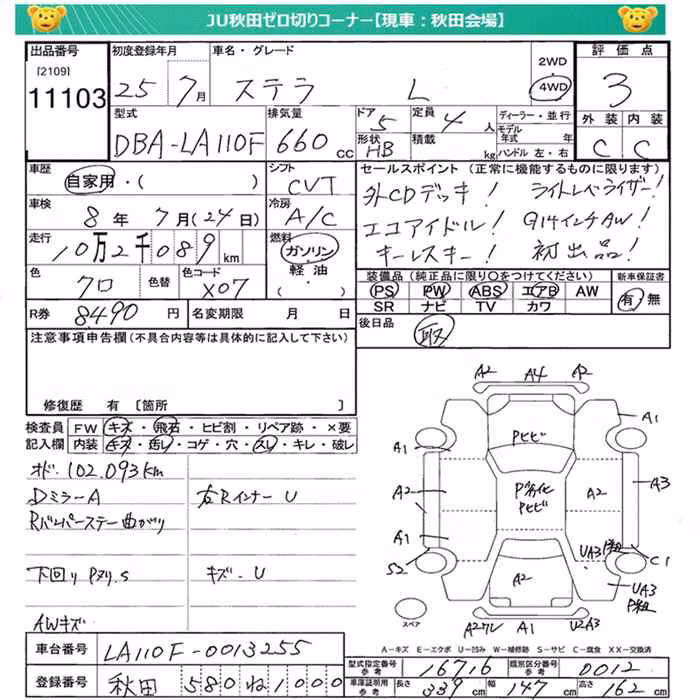 JU秋田ゼロ切りコーナー【現車：秋田会場】
出品番号 初度登録年月 車名・グレード 2WD 評価点
[2109] 11103 25年7月 ステラ L 4WD 3
型式 排気量 ドア 定員 ディーラー・並行 外装 内装
DBA-LA110F 660cc 5 4人 モデル年式 年 C C
形状 HB 積載 kg ハンドル 左・右
車歴 シフト セールスポイント（正常に機能するものに限ります）
自家用・( ) CVT 外CDデッキ! ライトレベライザー!
車検 冷房 エコアイドル! 914インチAW!
8年7月(24日) A/C キーレスキー! 初出品!
走行 燃料
10万2千089km ガソリン
軽油
・( )
色 色替 色コード 装備品（純正品に限り○をつけてください） 新車保証書
クロ X07 PS PW ABS エアB AW 有・無
SR ナビ TV カワ
R券 8490円 名変期限 月 日 後日品 取
注意事項申告欄（不具合内容等は具体的に記入して下さい）
修復歴 有 [箇所 ]
検査員 FW キズ・飛石・ヒビ割・リペア跡・×要
記入欄 内装 キズ・汚レ・コゲ・穴・スレ・キレ・破レ
オド.102.093km
Dミラー A 右Rインナー U
Rバンパーステー曲がり
下回り Pヌリ.S キズ.U
AWキズ
A2 A4 A2
A1 Pヒビ A1
A2 P劣化 Pヒビ A2 A3
A1 UA3 P粗
S2 A2 C1
UA3 P粗
スペア A2ワレ A1 U2A3
A－キズ E－エクボ U－凹み W－補修跡 S－サビ C－腐食 XX－交換済
車台番号 LA110F-0013255
型式指定番号 参考 16716 類別区分番号 参考 0012
登録番号 秋田 580 ね 1000
車庫証明用 参考 長さ 339cm 幅 147cm 高さ 162cm